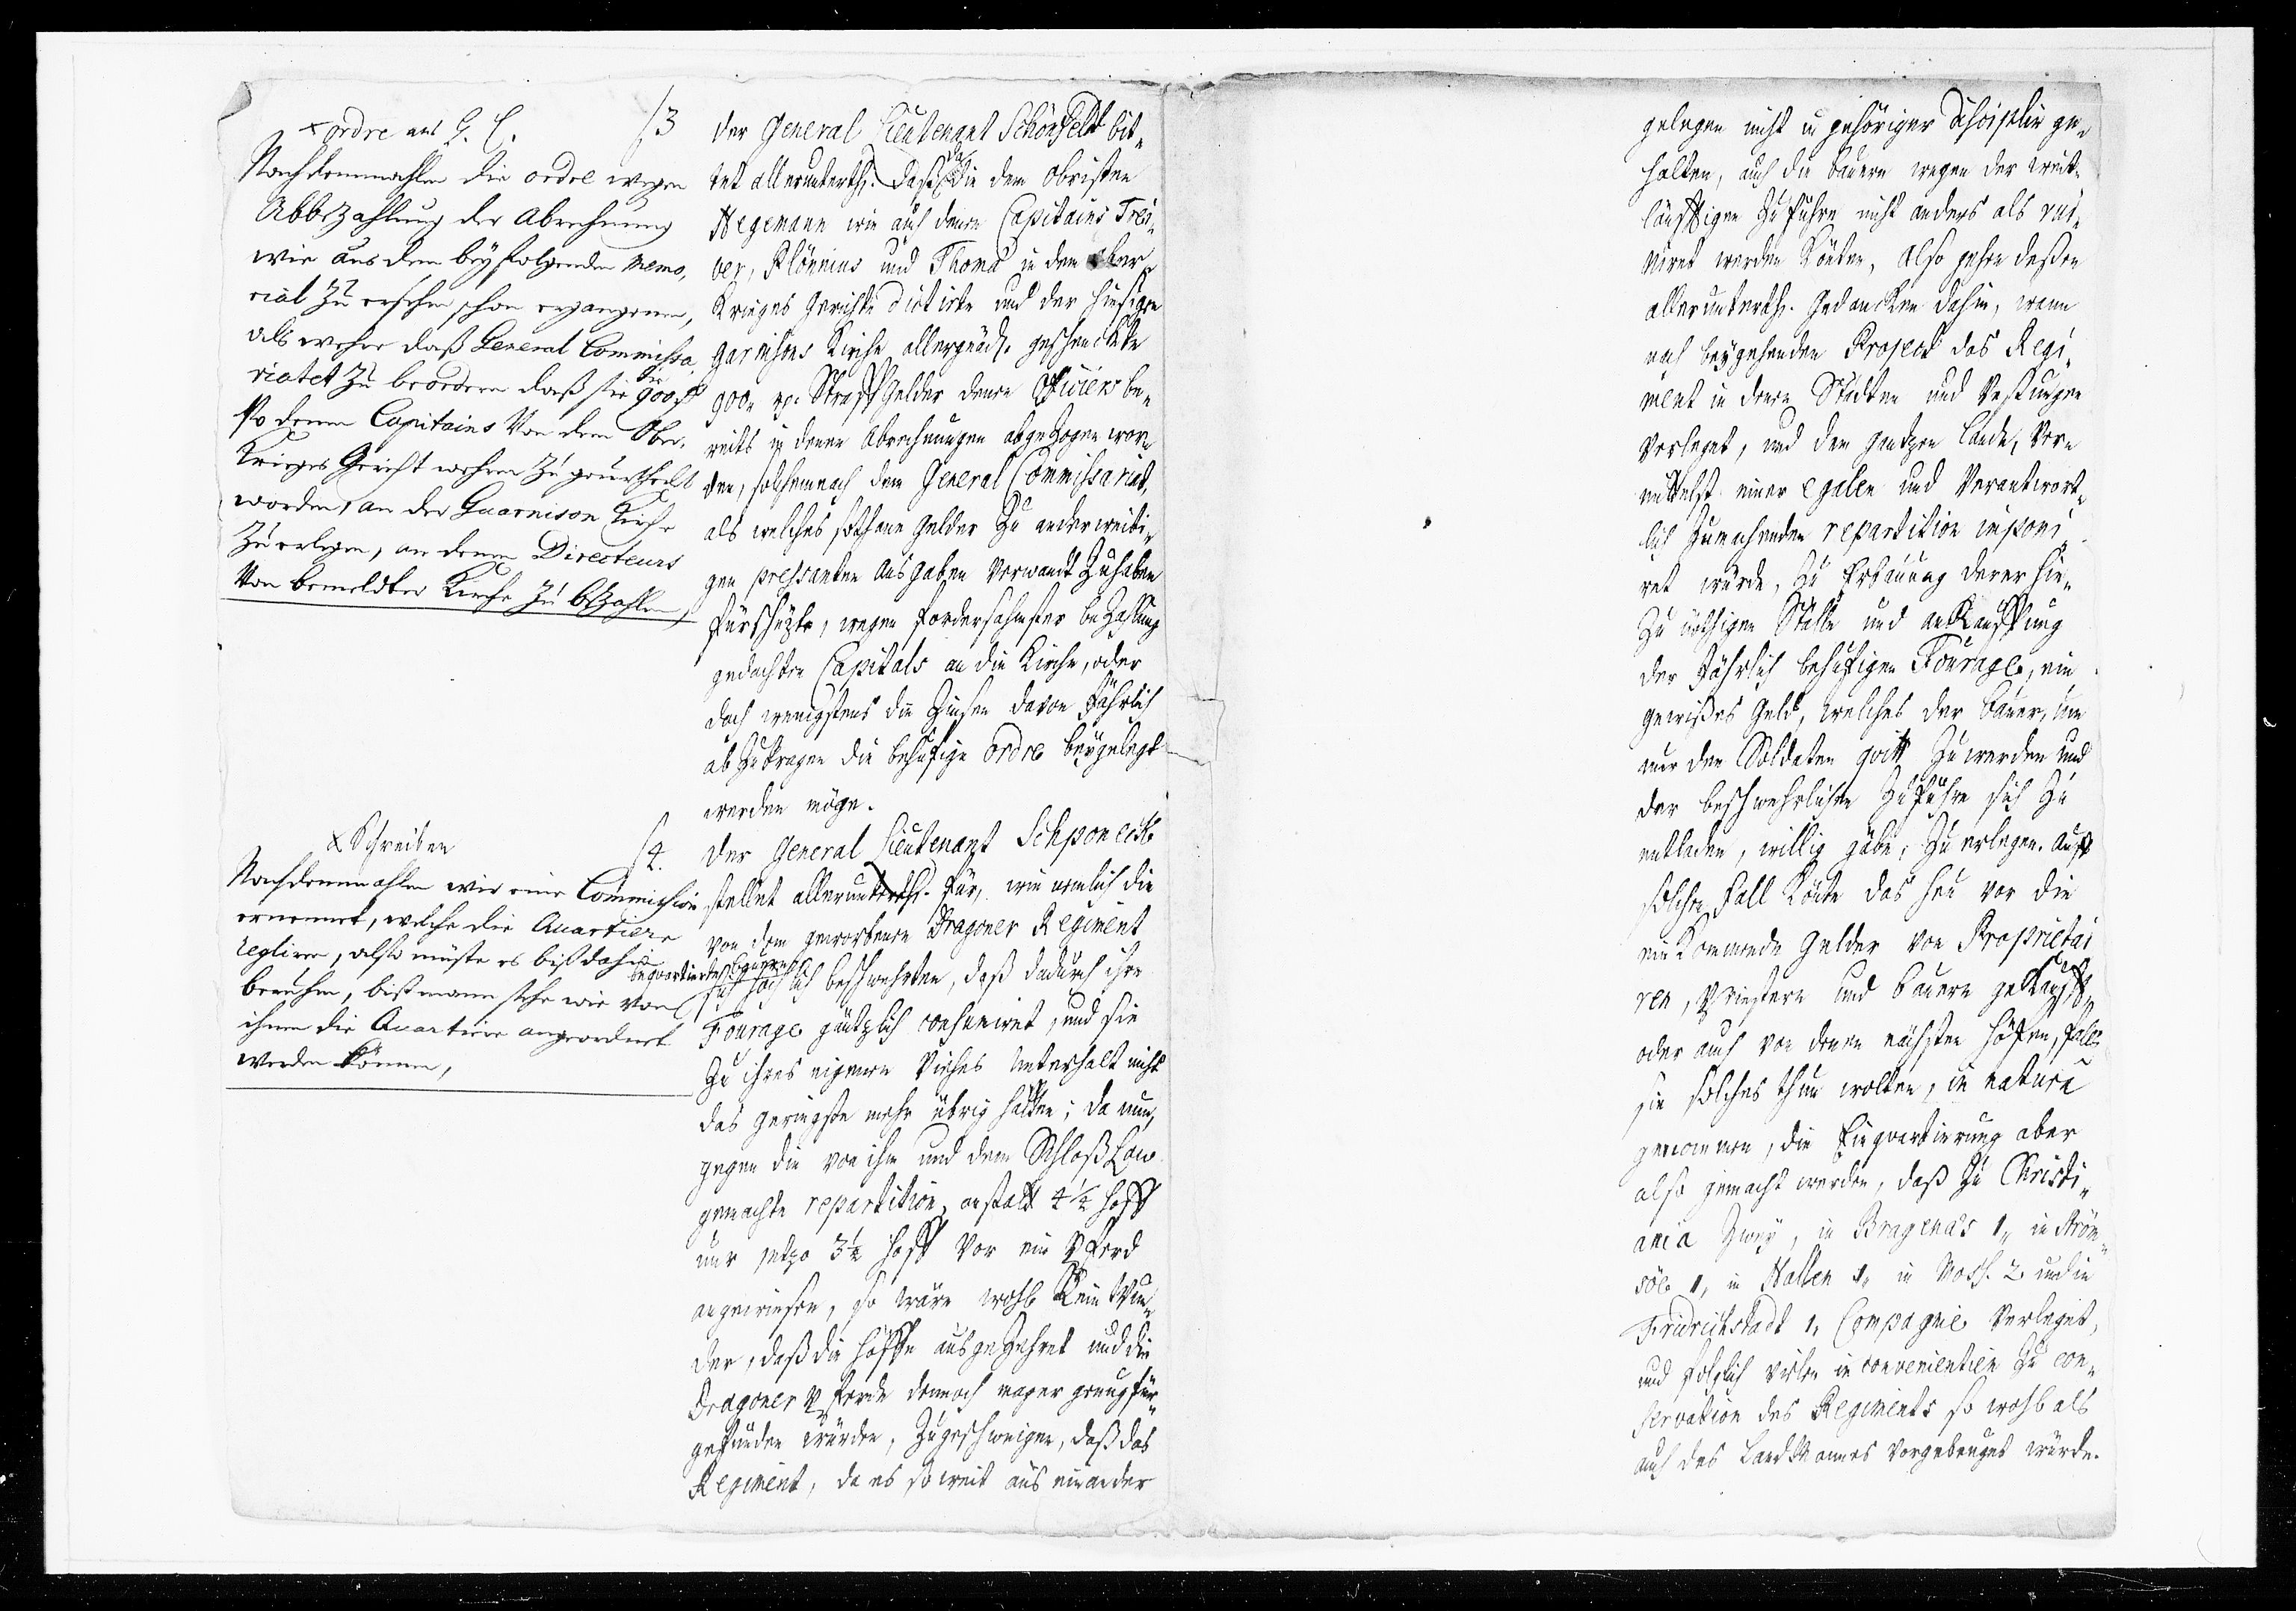 x ordre ans G. C.
Nachdemmahlen die ordre wegen
Abbezahlung der Abrechnung
wie aus dem beyfolgenden memo,
rial zu ersehen schon ergangenen,
als wehre daß General Commissa,
riatet zu beordern daß sie die 900 rd
so denen Capitains von dem Ober,
Krieges Gericht wehren zu geurtheilt
worden, an der Guarnison Kirche
zu erlegen, an denen Directeurs
von bemeldter Kirche zu bezahlen,
/3
der General Lieutenant Schönfeldt bit,
tet allerunterth. daß, da die dem Obristen
Hegemann wie auch denen Capitains Trei,
ver, Plönnius und Thoma in dem ober
Krieges Gerichte dictirte und der hiesigen
Garnisons Kirche allergnädst. geschenckte
900. rp. Straff Gelder denen Officiers be,
reits in denen Abrechnungen abgezogen wor,
den, solchemnach dem General Commissariat,
als welches sothane Gelder zu anderweiti,
gen pressanten Ausgaben verwandt zuhaben
fürschüzte, wegen fordersahmster bezahlung
gedachten Capitals an die Kirche, oder
doch wenigstens die Zinsen davon Jährlich
abzutragen die behufige ordre beygelegt
werden möge.
x Schreiben
Nachdemmahlen wir eine Commission
ernennet, welche die Quartiere
reglire, also müste es biß dahin
beruhen, biß mann sehe wie von
ihnen die Quartiere angeordnet
werden können,
/4.
der General Lieutenant Schponeck
stellet allerunterth. für, wie nemlich die
von dem geworbenen Dragoner Regiment
bequartirte Bauren
sich höchlich beschwehrten, daß dadurch ihre
Fourage gäntzlich consumiret, und sie
zu ihres eigenen Viehes Unterhalt nicht
das geringste mehr übrig hätten; da nun,
gegen die von ihm und dem Schloß Law
gemachte repartition, anstatt 4½ Hoff
nur jetzo 3½ Hoff vor ein Pferd
angewiesen, so wäre wohl kein Wun,
der, daß die Höffe ausgezehret und die
Dragoner Pferde dennoch mager genug für,
gefunden würden, zugeschweigen, daß das
Regiment, da es so weit aus einander
gelegen nicht in gehöriger Disciplin ge,
halten, auch die bauren wegen der weit,
läufftigen Zufuhre nicht anders als rui,
niret werden könten, Also gehen deßen
allerunterth. Gedancken dahin, wenn
nach beygehenden Project das Regi,
ment in denen Städten und Vestungen
verleget, und dem gantzen Lande, ver,
mittelst einer egalen und verantwort,
lich zumachenden repartition imponi,
ret würde, zu Erbauung derer hie,
zu nöthigen Ställe und ankauffung
der Jährlich behufigen Fourage, ein
gewißes Geld, welches der bauer, um
nur den Soldaten qvitt zu werden und
der beschwehrlichen Zufuhre sich zu
entladen, willig gäbe, zu erlegen. Auff
solchen Fall könte das Heu vor die
einkommende Gelder von Proprietai
ren, Priestern und bauren gekaufft,
oder auch von denen nächsten Höfen, falls
sie solches thun wolten, in natura
genommen, die Einqvartierung aber
also gemacht werden, daß zu Christi,
ania Zwey, in Bragenäs 1, in Ström,
söe 1, in Hallen 1, in Moss. 2 und in
Fridrichstadt 1. Compagnie verleget,
und folglich vielen inconvenientien zu con,
servation des Regiments so wohl als
auch des Landtmannes vorgebeuget würde.